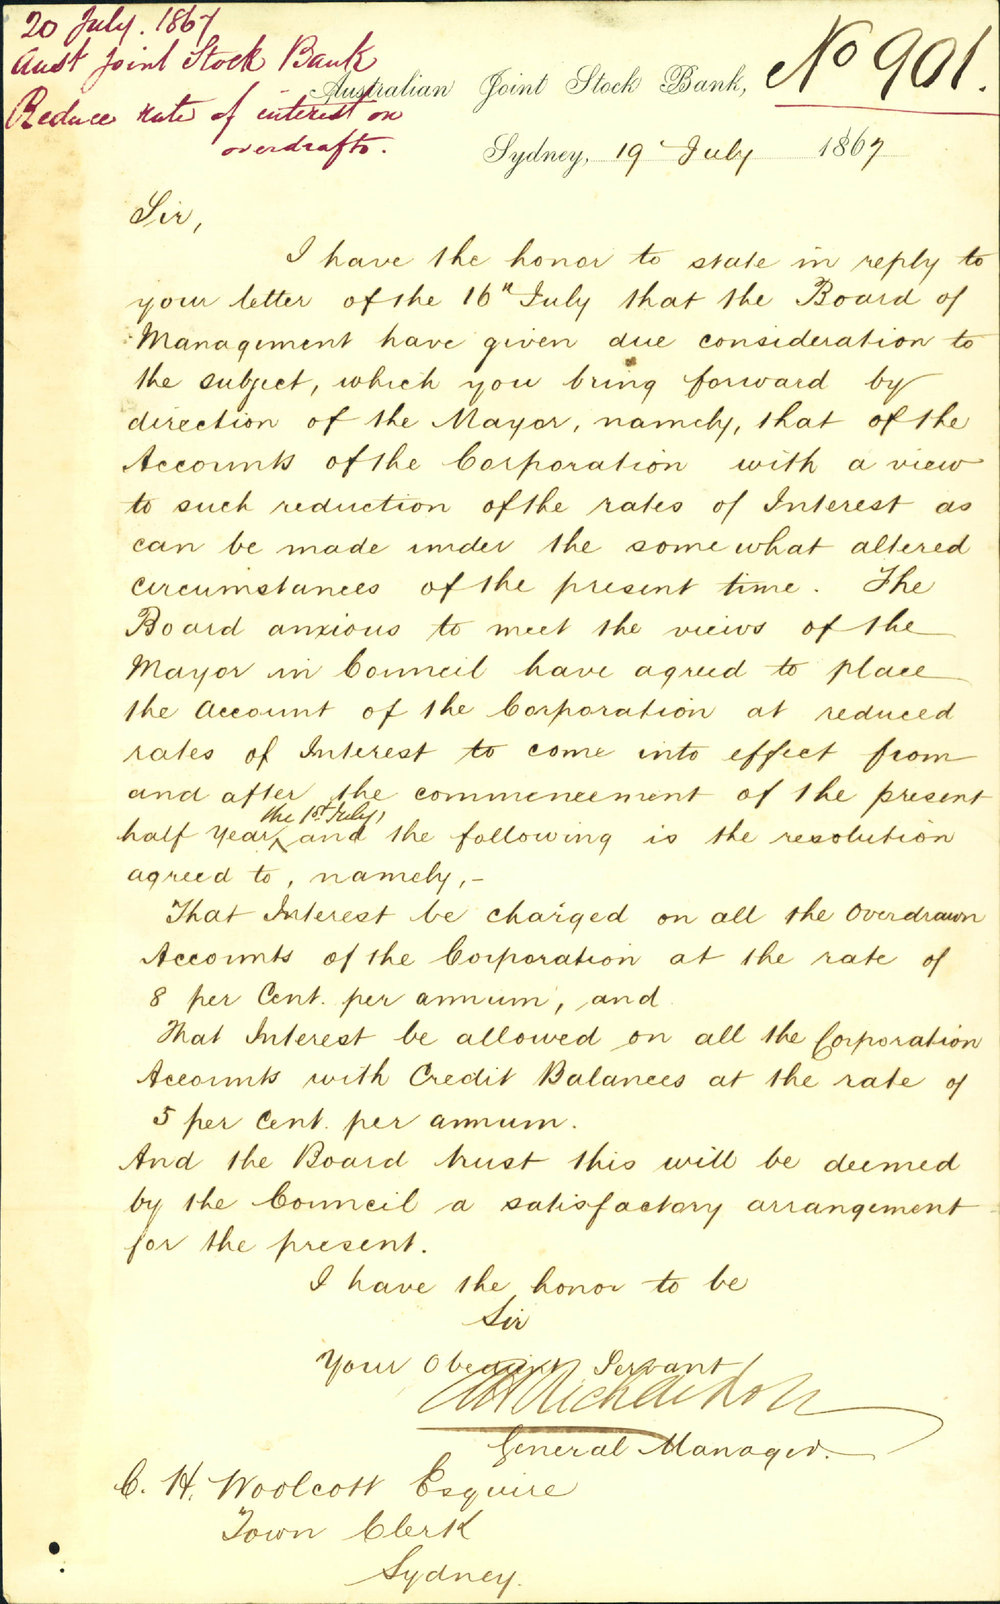 20 July. 1867
Aust Joint Stock Bank
Reduce rate of interest on
overdrafts.
No 901.
Australian Joint Stock Bank,
Sydney, 19 July 1867
Sir,
I have the honor to state in reply to
your letter of the 16th July that the Board of
Management have given due consideration to
the subject, which you bring forward by
direction of the Mayor, namely, that of the
Accounts of the Corporation with a view
to such reduction of the rates of Interest as
can be made under the somewhat altered
circumstances of the present time. The
Board anxious to meet the views of the
Mayor in Council have agreed to place
the Account of the Corporation at reduced
rates of Interest to come into effect from
and after the commencement of the present
the 1st July,
half year, and the following is the resolution
agreed to, namely,-
That Interest be charged on all the Overdrawn
Accounts of the Corporation at the rate of
8 per Cent. per annum, and
That Interest be allowed on all the Corporation
Accounts with Credit Balances at the rate of
5 per Cent. per annum.
And the Board trust this will be deemed
by the Council a satisfactory arrangement
for the present.
I have the honor to be
Sir
Your Obedient Servant
Richardson
General Manager.
C. H. Woolcott Esquire
Town Clerk
Sydney.